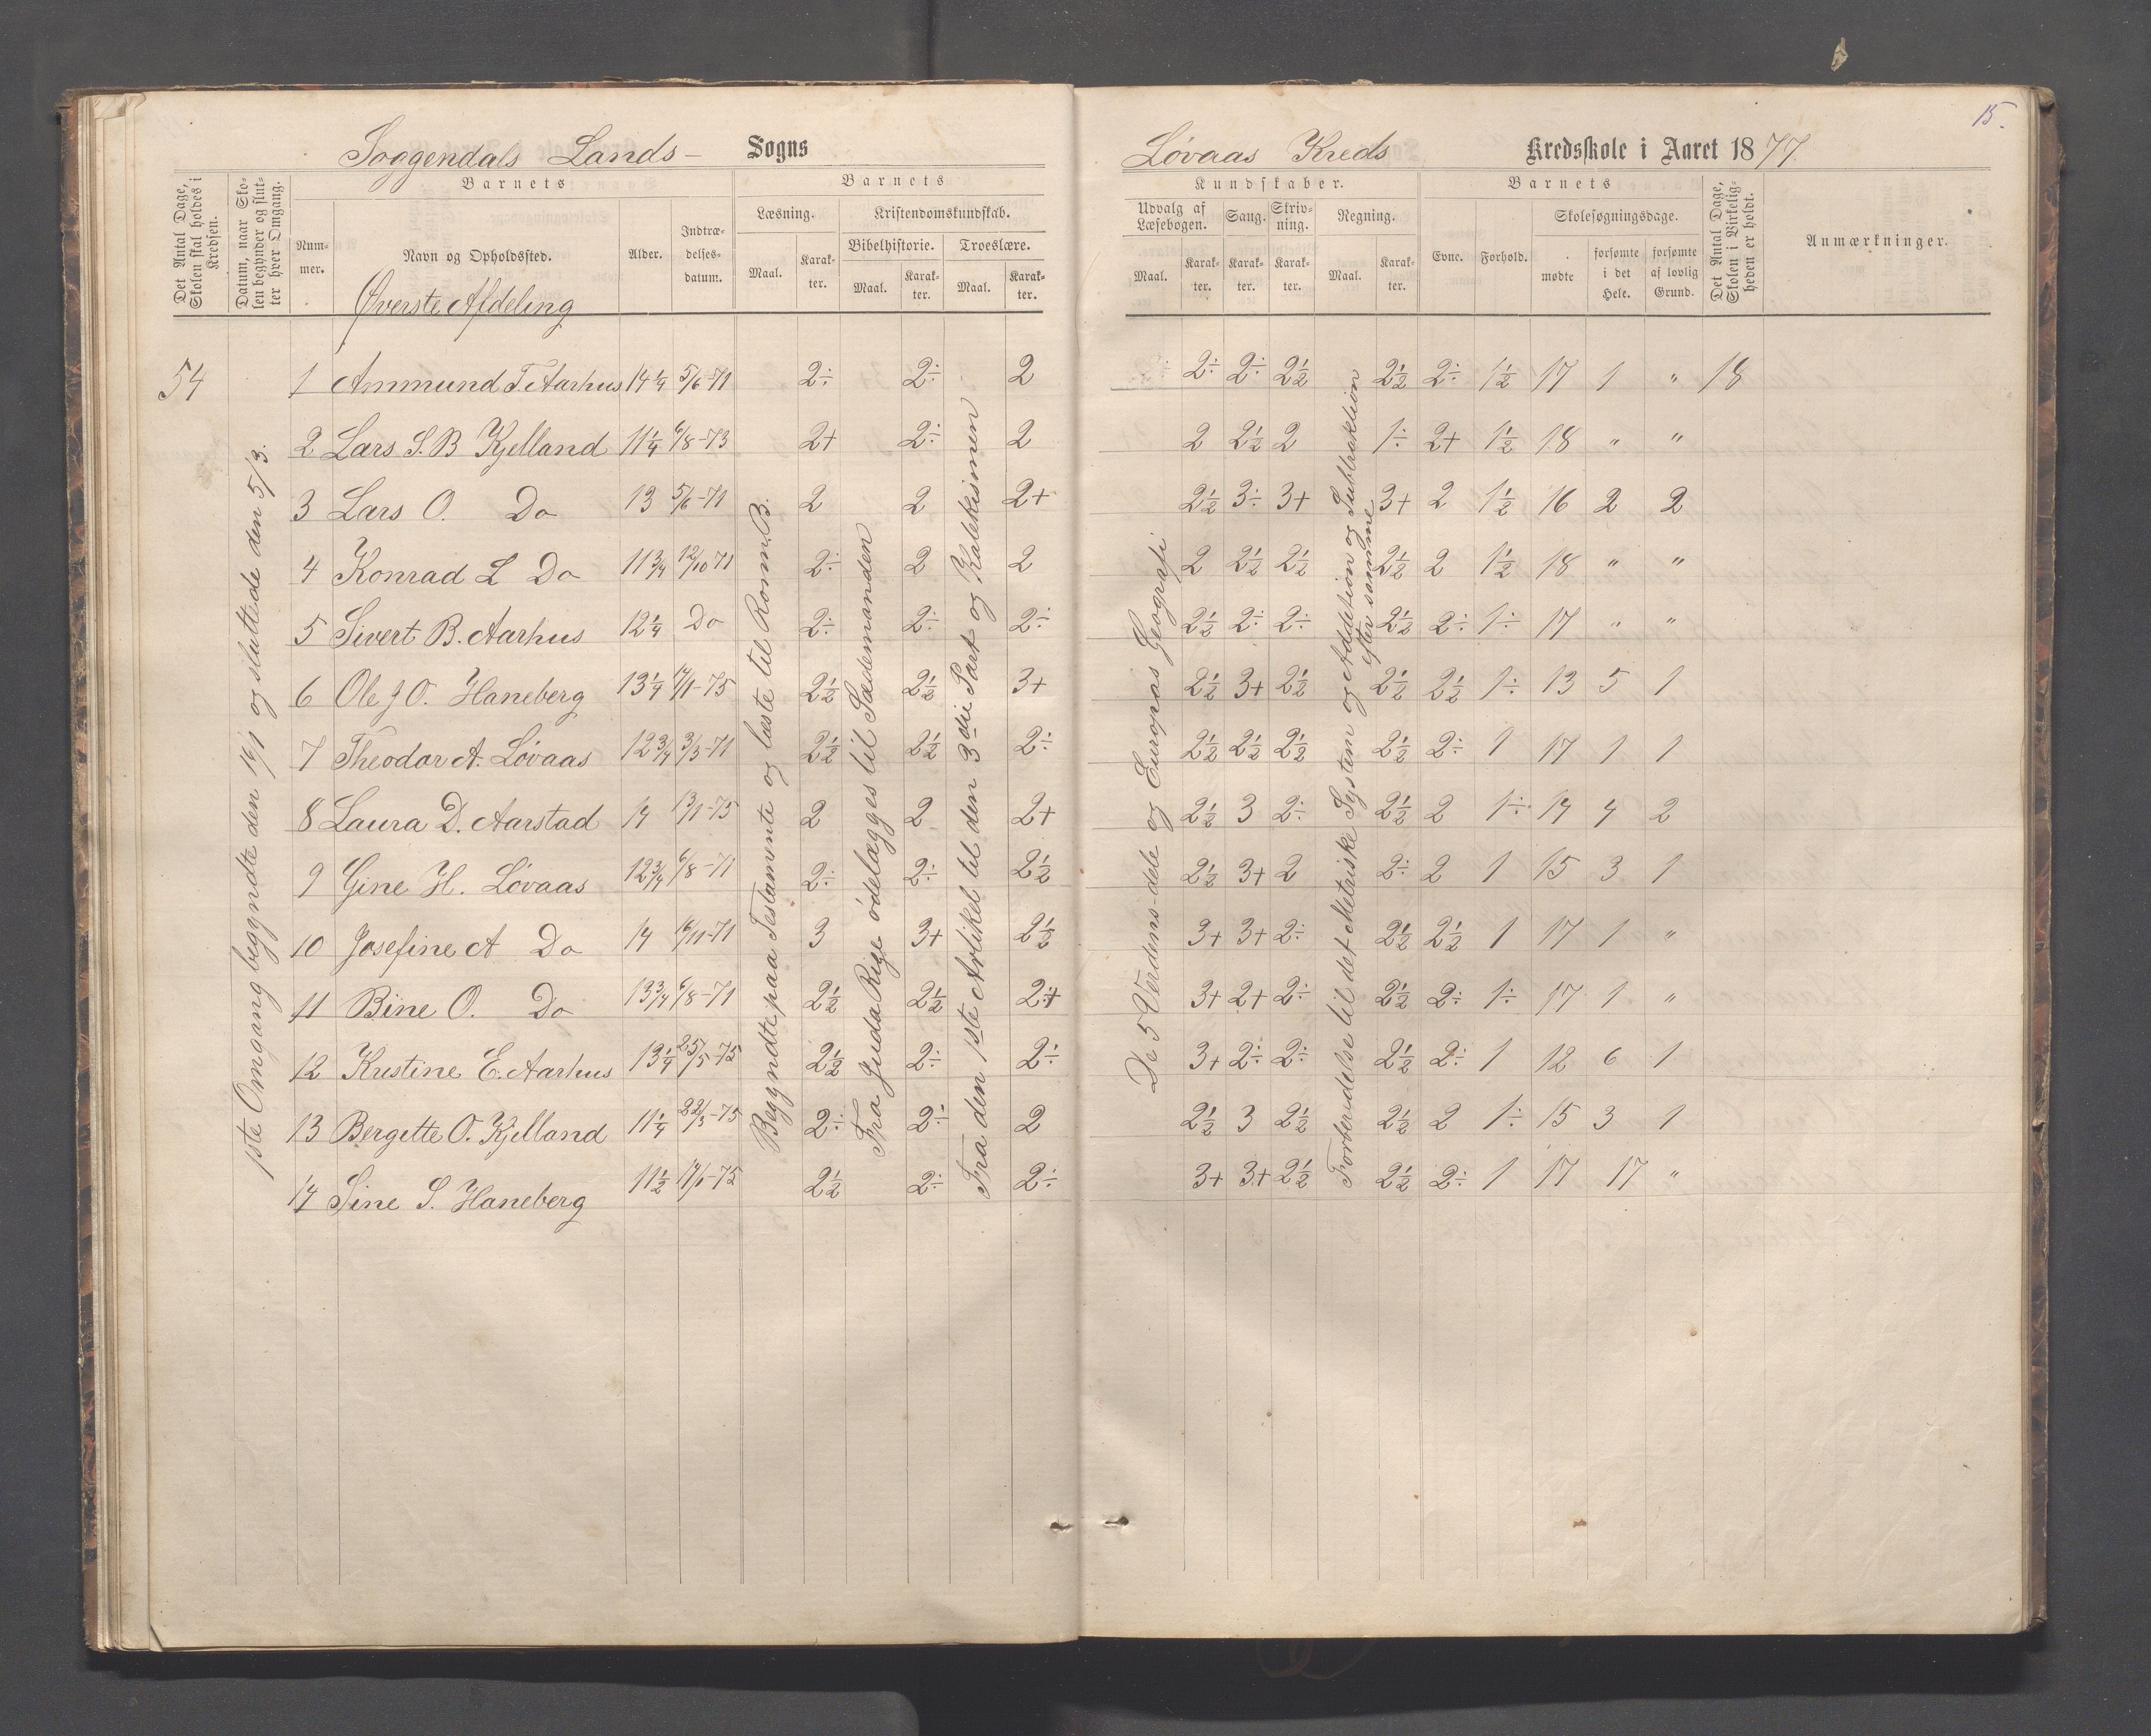 15.
Soggendals Lands- Sogns
Løvaas Kreds Kredsskole i Aaret 1877.
Det Antal Dage, Skolen skal holdes i Kredsen.
Datum, naar Skolen begynder og slutter hver Omgang.
Barnets
Nummer.
Navn og Opholdssted.
Alder.
Indtrædelsesdatum.
Barnets
Læsning.
Maal.
Karakter.
Kristendomskundskab.
Bibelhistorie.
Maal.
Karakter.
Troeslære.
Maal.
Karakter.
Kundskaber.
Udvalg af Læsebogen.
Maal.
Karakter.
Sang.
Karakter.
Skrivning.
Karakter.
Regning.
Maal.
Karakter.
Barnets
Evne.
Forhold.
Skolesøgningsdage.
mødte
forsømte i det Hele.
forsømte af lovlig Grund.
Det Antal Dage, Skolen i Virkeligheden er holdt.
Anmærkninger.
Øverste Afdeling
54
1ste Omgang begyndte den 14/1 og sluttede den 5/3.
Begyndte paa Testamente og læste til Rom. B.
Fra Juda Rige ódelægges til Sædemanden
Fra den 1ste Artikel til den 3die Part og Katekismen
De 5 Verdens-dele og Europas Geografi
Forberedelse til det Metriske System og Addition og Subtraktion
efter samme
1 Ammund T. Aarhus 14 1/4 5/6-71 2÷ 2÷ 2 2÷ 2÷ 2 1/2 2 1/2 2÷ 1 1/2 17 1 " 18
2 Lars S. B Kjelland 11 1/4 6/8-73 2+ 2÷ 2 2 2 1/2 2 1÷ 2+ 1 1/2 18 " "
3 Lars O. Do 13 5/6-71 2 2 2+ 2 1/2 3÷ 3+ 3+ 2 1 1/2 16 2 2
4 Konrad L Do 11 3/4 12/10 71 2÷ 2 2 2 2 1/2 2 1/2 2 1/2 2 1 1/2 18 " "
5 Sivert B. Aarhus 12 1/4 Do 2÷ 2÷ 2÷ 2 1/2 2÷ 2÷ 2 1/2 2÷ 1÷ 17 " "
6 Ole J O. Haneberg 13 1/4 14/1-75 2 1/2 2 1/2 3+ 2 1/2 3+ 2 1/2 2 1/2 2 1/2 1÷ 13 5 1
7 Theodor A. Løvaas 12 3/4 3/3-71 2 1/2 2 1/2 2÷ 2 1/2 2 1/2 2 1/2 2 1/2 2÷ 1 17 1 1
8 Laura D. Aarstad 14 13/1-75 2 2 2+ 2 1/2 3 2÷ 2 1/2 2 1÷ 14 4 2
9 Gine H. Lövaas 12 3/4 6/8-71 2÷ 2÷ 2 1/2 2 1/2 3+ 2 2÷ 2 1 15 3 1
10 Josefine A Do 14 6/11-71 3 3+ 2 1/2 3+ 3+ 2÷ 2 1/2 2 1/2 1 17 1 "
11 Bine O. Do 13 3/4 6/8-71 2 1/2 2 1/2 2+ 3+ 2+ 2÷ 2 1/2 2÷ 1÷ 17 1 "
12 Kristine E. Aarhus 13 1/4 25/5-75 2 1/2 2÷ 2÷ 3+ 2÷ 2÷ 2 1/2 2÷ 1 12 6 1
13 Bergette O. Kjelland 11 1/4 22/3-75 2÷ 2÷ 2 2 1/2 3 2 1/2 2 1/2 2 1÷ 15 3 1
14 Sine S. Haneberg 11 1/2 14/1-75 2 1/2 2÷ 2÷ 3+ 3+ 2 1/2 2 1/2 2÷ 1 17 17 "